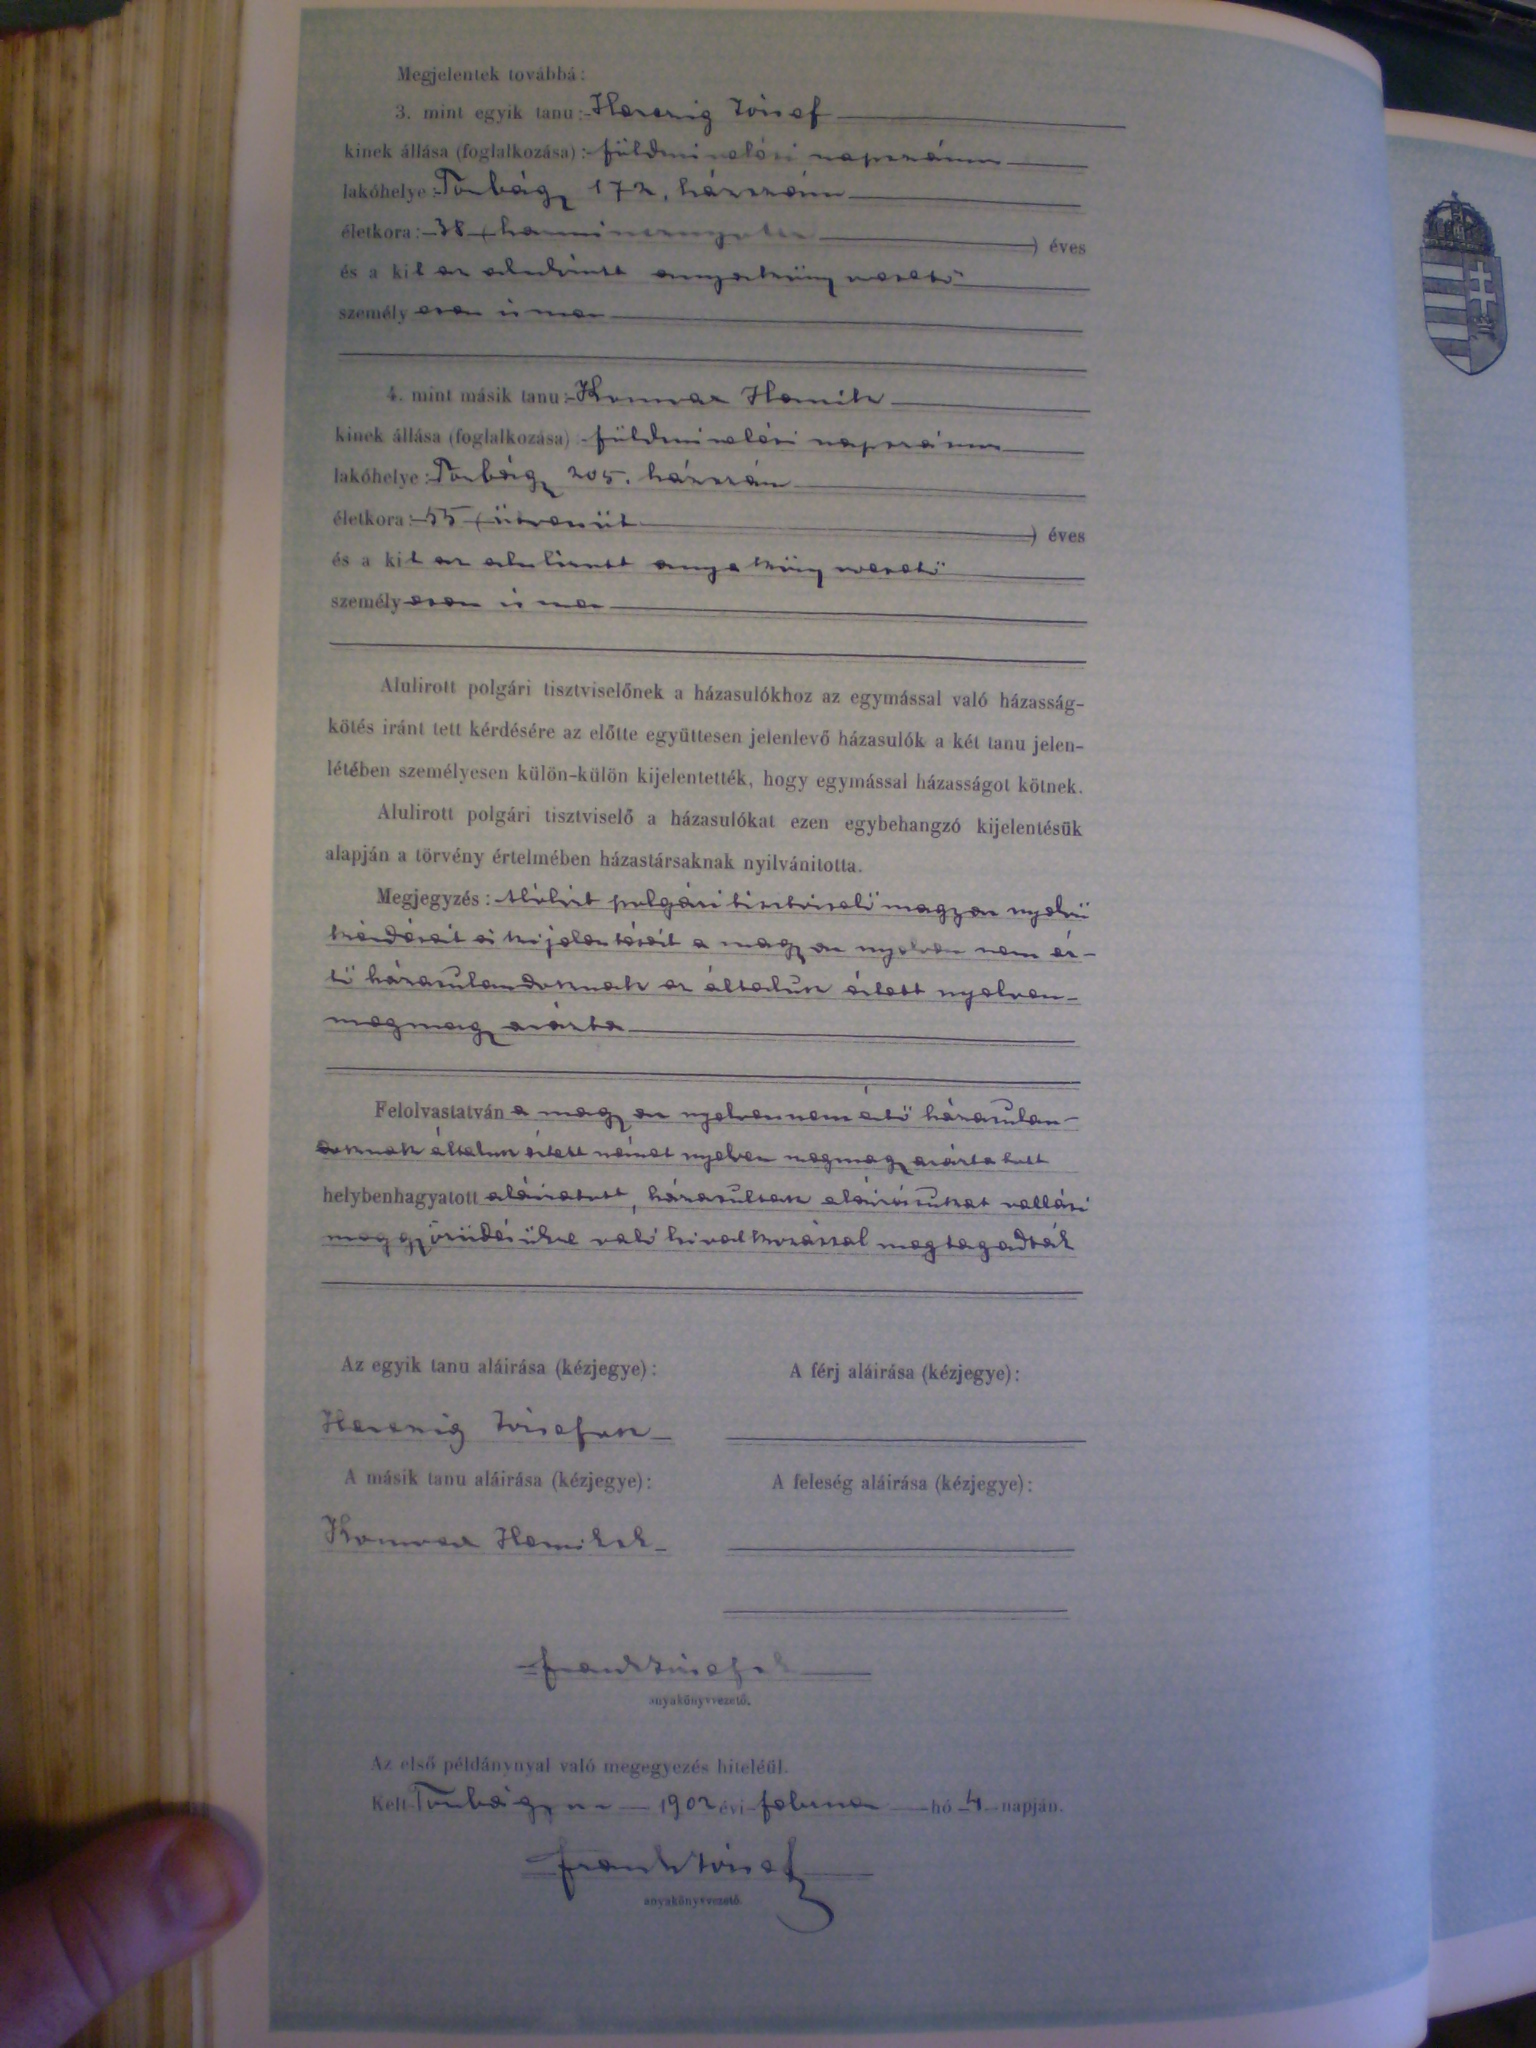 Megjelentek továbbá:
3. mint egyik tanu: Herczig József
kinek állása (foglalkozása): földmivelési napszámos
lakóhelye: Torbágy 172. házszám
életkora: 38 (harmincnyolcz) éves
és a kit az alulirott anyakönyvvezető
személyesen ismer
4. mint másik tanu: Henrik
kinek állása (foglalkozása) földmivelési napszámos
lakóhelye: Torbágy 205. házszám
életkora: 55 (ötvenöt) éves
és a kit az alulirott anyakönyvvezető
személyesen ismer
Alulirott polgári tisztviselőnek a házasulókhoz az egymással való házasság-
kötés iránt tett kérdésére az előtte együttesen jelenlevő házasulók a két tanu jelen-
létében személyesen külön-külön kijelentették, hogy egymással házasságot kötnek.
Alulirott polgári tisztviselő a házasulókat ezen egybehangzó kijelentésük
alapján a törvény értelmében házastársaknak nyilvánitotta.
Megjegyzés: Alólirt polgári tisztviselő magyar nyelvü
kérdéseit és kijelentéseit a magyar nyelven nem ér-
tő házasulandoknak az általuk értett nyelven
megmagyarázta
Felolvastatván a magyar nyelven nem értő házasulan-
doknak általuk értett német nyelven megmagyaráztatott
helybenhagyatott aláiratott, házasultak aláirásukat vallási
meggyőződésükre való hivatkozással megtagadták
Az egyik tanu aláirása (kézjegye): A férj aláirása (kézjegye):
Herczig József sk
A másik tanu aláirása (kézjegye): A feleség aláirása (kézjegye):
Henrik sk
Frank József sk
anyakönyvvezető.
Az első példánynyal való megegyezés hiteléül.
Kelt Torbágyon 1902 évi február hó 4 napján.
Frank József
anyakönyvvezető